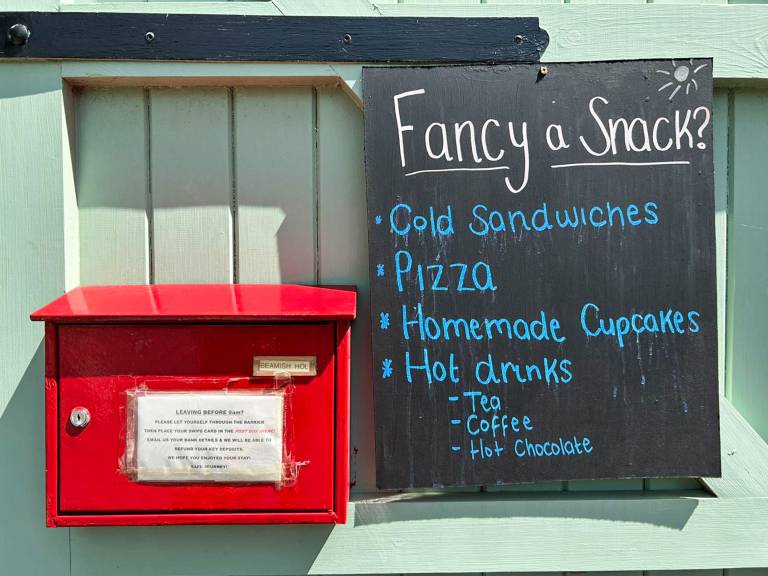 Fancy a Snack?
* Cold Sandwiches
* Pizza
* Homemade Cupcakes
* Hot drinks
- Tea
- Coffee
- Hot Chocolate
BEAMISH HOL
LEAVING BEFORE 9am?
PLEASE LET YOURSELF THROUGH THE BARRIER
THEN PLACE YOUR SWIPE CARD IN THE POST BOX
EMAIL US YOUR BANK DETAILS & WE WILL BE ABLE TO
REFUND YOUR KEY DEPOSITS.
WE HOPE YOU ENJOYED YOUR STAY!
SAFE JOURNEY!